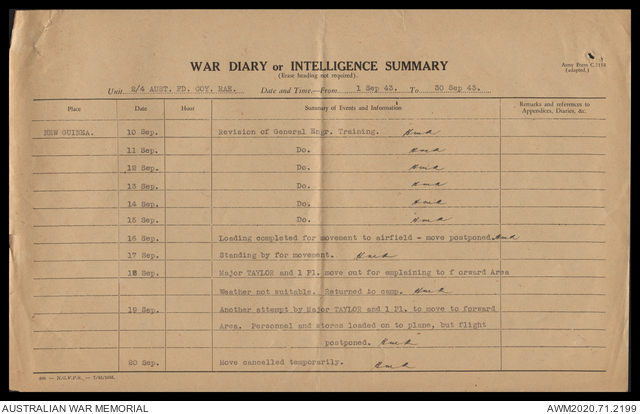 WAR DIARY or INTELLIGENCE SUMMARY
(Erase heading not required).
Army Form C.2118
(adapted.)
Unit 2/4 AUST. FD. COY. RAE. Date and Time.—From 1 Sep 43. To 30 Sep 43.
Place Date Hour Summary of Events and Information Remarks and references to
Appendices, Diaries, &c.
NEW GUINEA. 10 Sep. Revision of General Engr. Training.
11 Sep. Do.
12 Sep. Do.
13 Sep. Do.
14 Sep. Do.
15 Sep. Do.
16 Sep. Loading completed for movement to airfield - move postponed.
17 Sep. Standing by for movement.
18 Sep. Major TAYLOR and 1 Pl. move out for emplaining to f orward Area
Weather not suitable. Returned to camp.
19 Sep. Another attempt by Major TAYLOR and 1 Pl. to move to forward
Area. Personnel and stores loaded on to plane, but flight
postponed.
20 Sep. Move cancelled temporarily.
AUSTRALIAN WAR MEMORIAL
AWM2020.71.2199